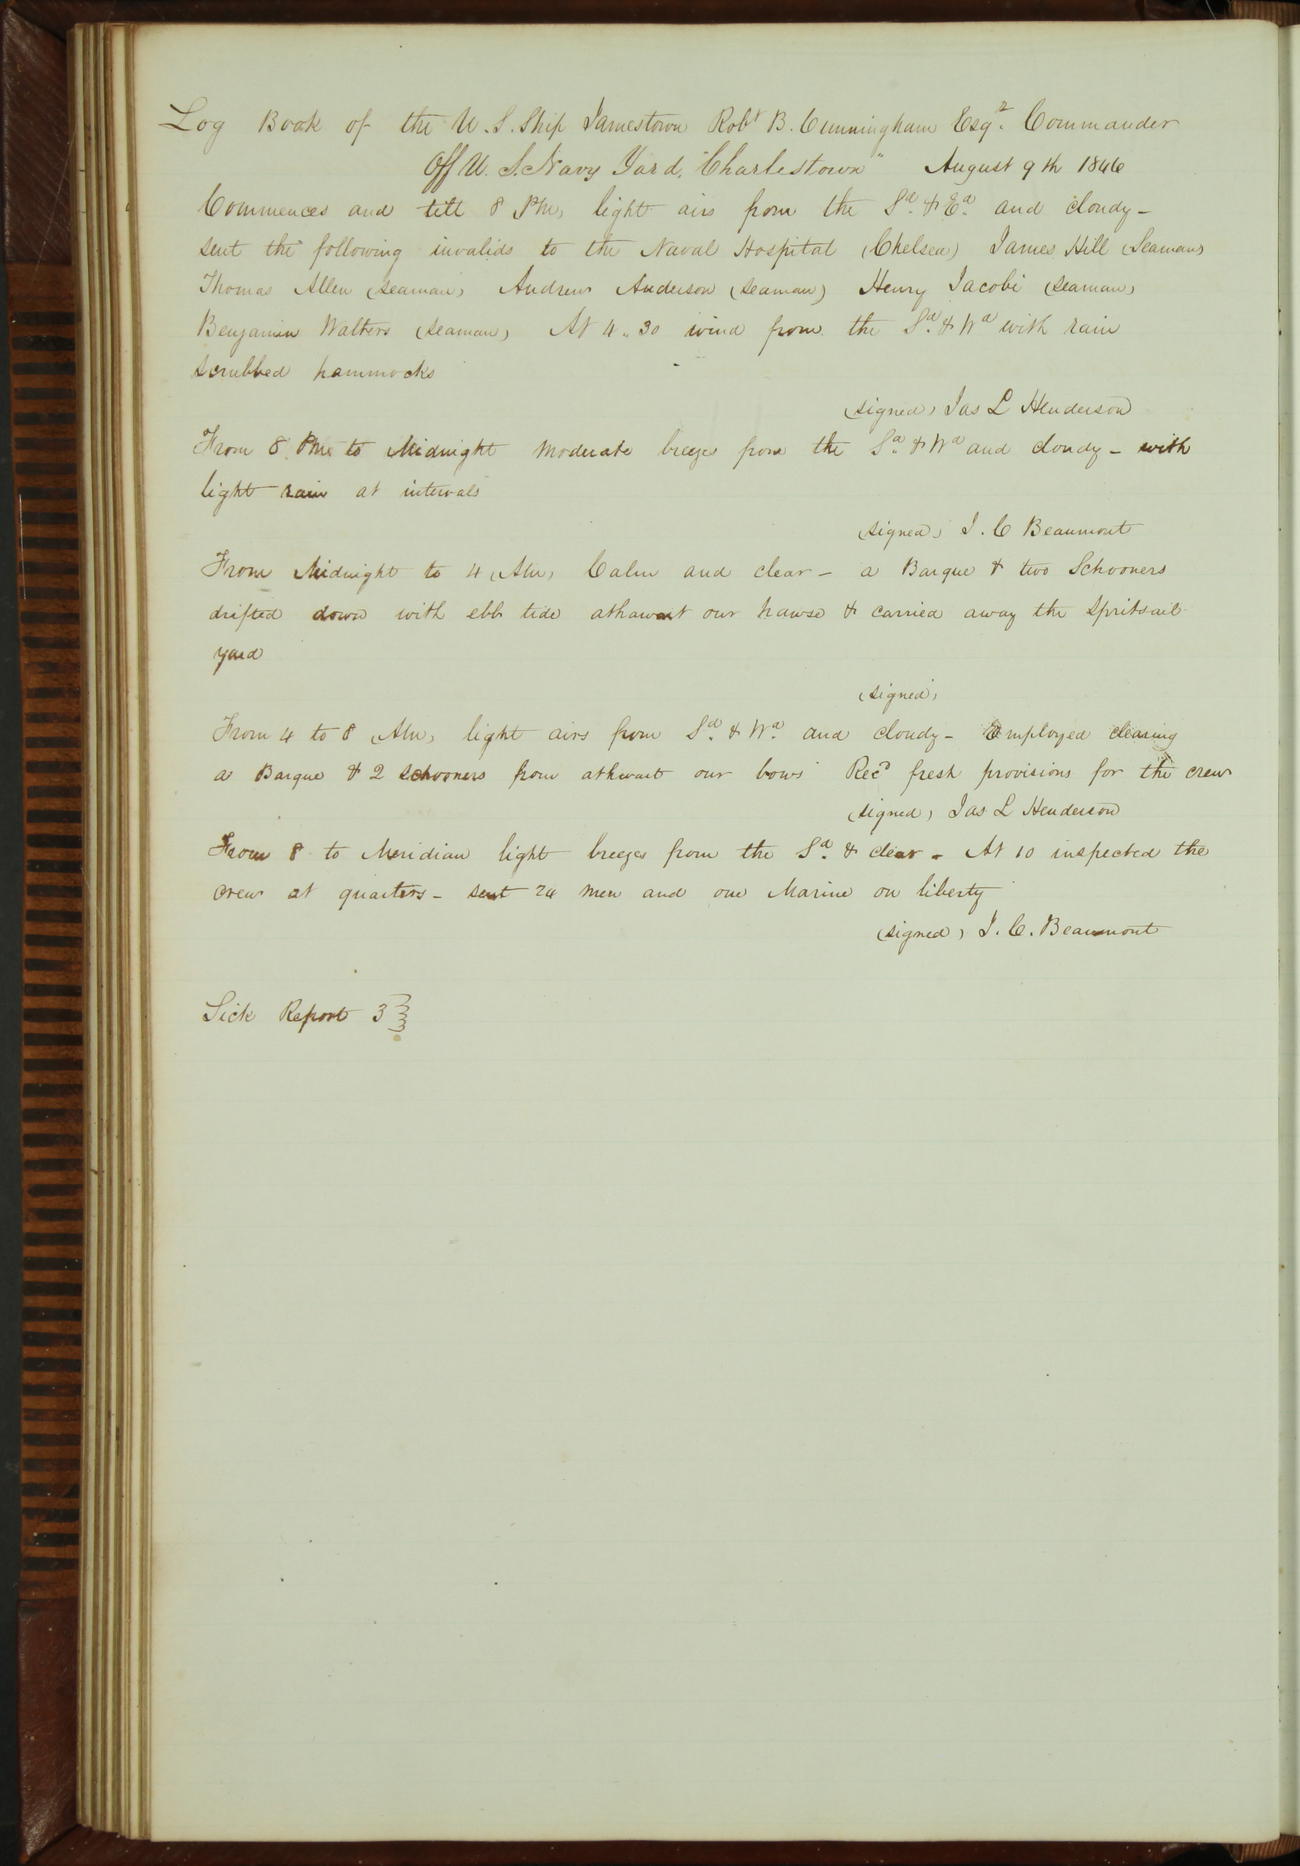 Log Book of the U. S. Ship Jamestown Robt B. Cunningham Esqr. Commander
Off U. S. Navy Yard, "Charlestown" August 9th 1846
Commences and till 8 PM, light airs from the Sd. & Ed. and cloudy -
sent the following invalids to the Naval Hospital (Chelsea) James Hill (Seaman)
Thomas Allen (seaman) Andrew Anderson (seaman) Henry Jacobi (seaman)
Benjamin Walters (seaman) At 4..30 wind from the Sd. & Wd with rain
scrubbed hammocks
(signed) Jas L Henderson
From 8 PM to Midnight moderate breezes from the Sd. & Wd and cloudy - with
light rain at intervals
(signed) J. C Beaumont
From Midnight to 4 (AM) Calm and clear - a Barque & two Schooners
drifted down with ebb tide athawart our hawse & carried away the Spritsail
yard
(signed)
From 4 to 8 (AM) light airs from Sd. & Wd. and cloudy - Employed clearing
a Barque & 2 schooners from athwart our bows Recd fresh provisions for the crew
(signed) Jas L Henderson
From 8 to Meridian light breezes from the Sd. & clear - At 10 inspected the
crew at quarters - sent 24 men and one Marine on liberty
(signed) J. C. Beaumont
Sick Report 3}